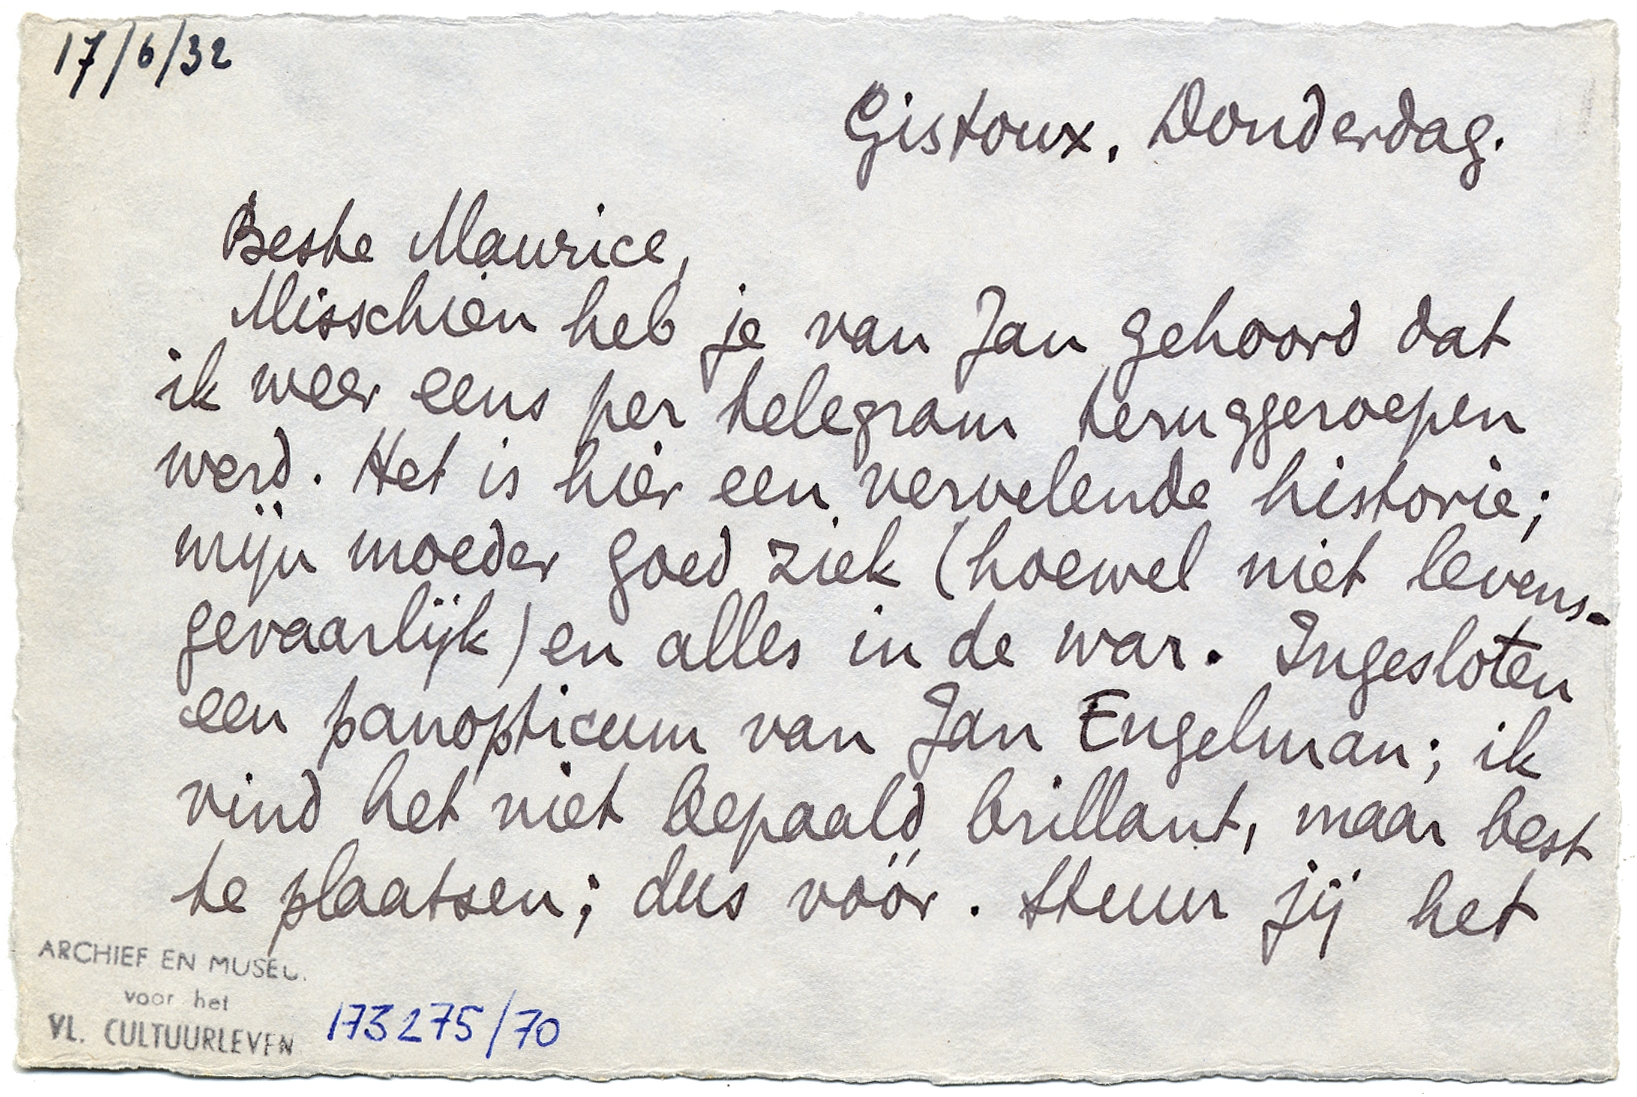 17/6/32
Gistoux, Donderdag.
Beste Maurice,
Misschien heb je van Jan gehoord dat
ik weer eens per telegram teruggeroepen
werd. Het is hier een vervelende historie;
mijn moeder goed ziek (hoewel niet levens-
gevaarlijk) en alles in de war. Ingesloten
een panopticum van Jan Engelman; ik
vind het niet bepaald brillant, maar best
te plaatsen; dus vóór. Stuur jij het
ARCHIEF EN MUSEU.
voor het
VL. CULTUURLEVEN
173275/70